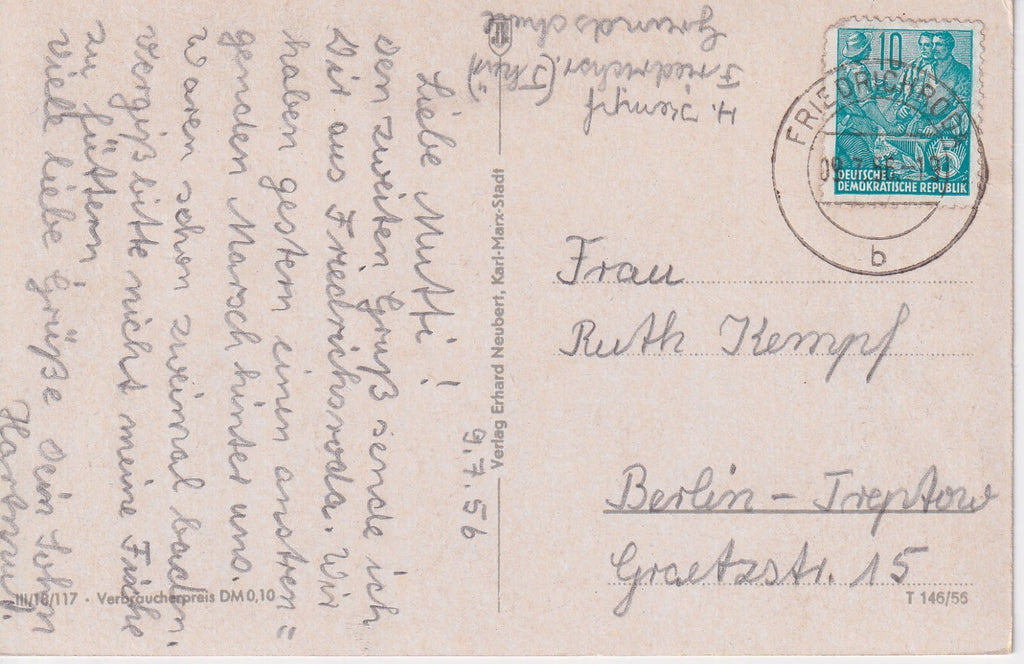 9.7.56
Liebe Mutti!
Den zweiten Gruß sende ich
Dir aus Friedrichsroda. Wir
haben gestern einen anstren=
genden Marsch hinter uns.
Waren schon zweimal baden.
Vergiß bitte nicht meine Fische
zu füttern
Viele liebe Grüße Dein Sohn
Hartmut.
H. Kempf
Friedrichsr. (Thür)
Grundschule
Verlag Erhard Neubert, Karl-Marx-Stadt
10
5
DEUTSCHE
DEMOKRATISCHE REPUBLIK
FRIEDRICHRODA
b
Frau
Ruth Kempf
Berlin - Treptow
Graetzstr. 15
III/18/117 · Verbraucherpreis DM 0,10
T 146/56